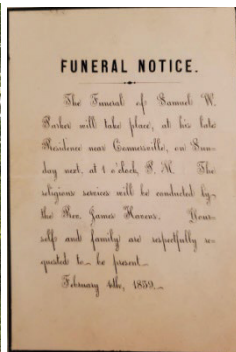 FUNERAL NOTICE.
The Funeral of Samuel W.
Parker will take place, at his late
Residence near Connersville, on Sun-
day next, at 1 o'clock, P. M. The
religious services will be conducted by
the Rev. James Havens. Your-
self and family are respectfully re-
quested to be present.
February 4th, 1859.